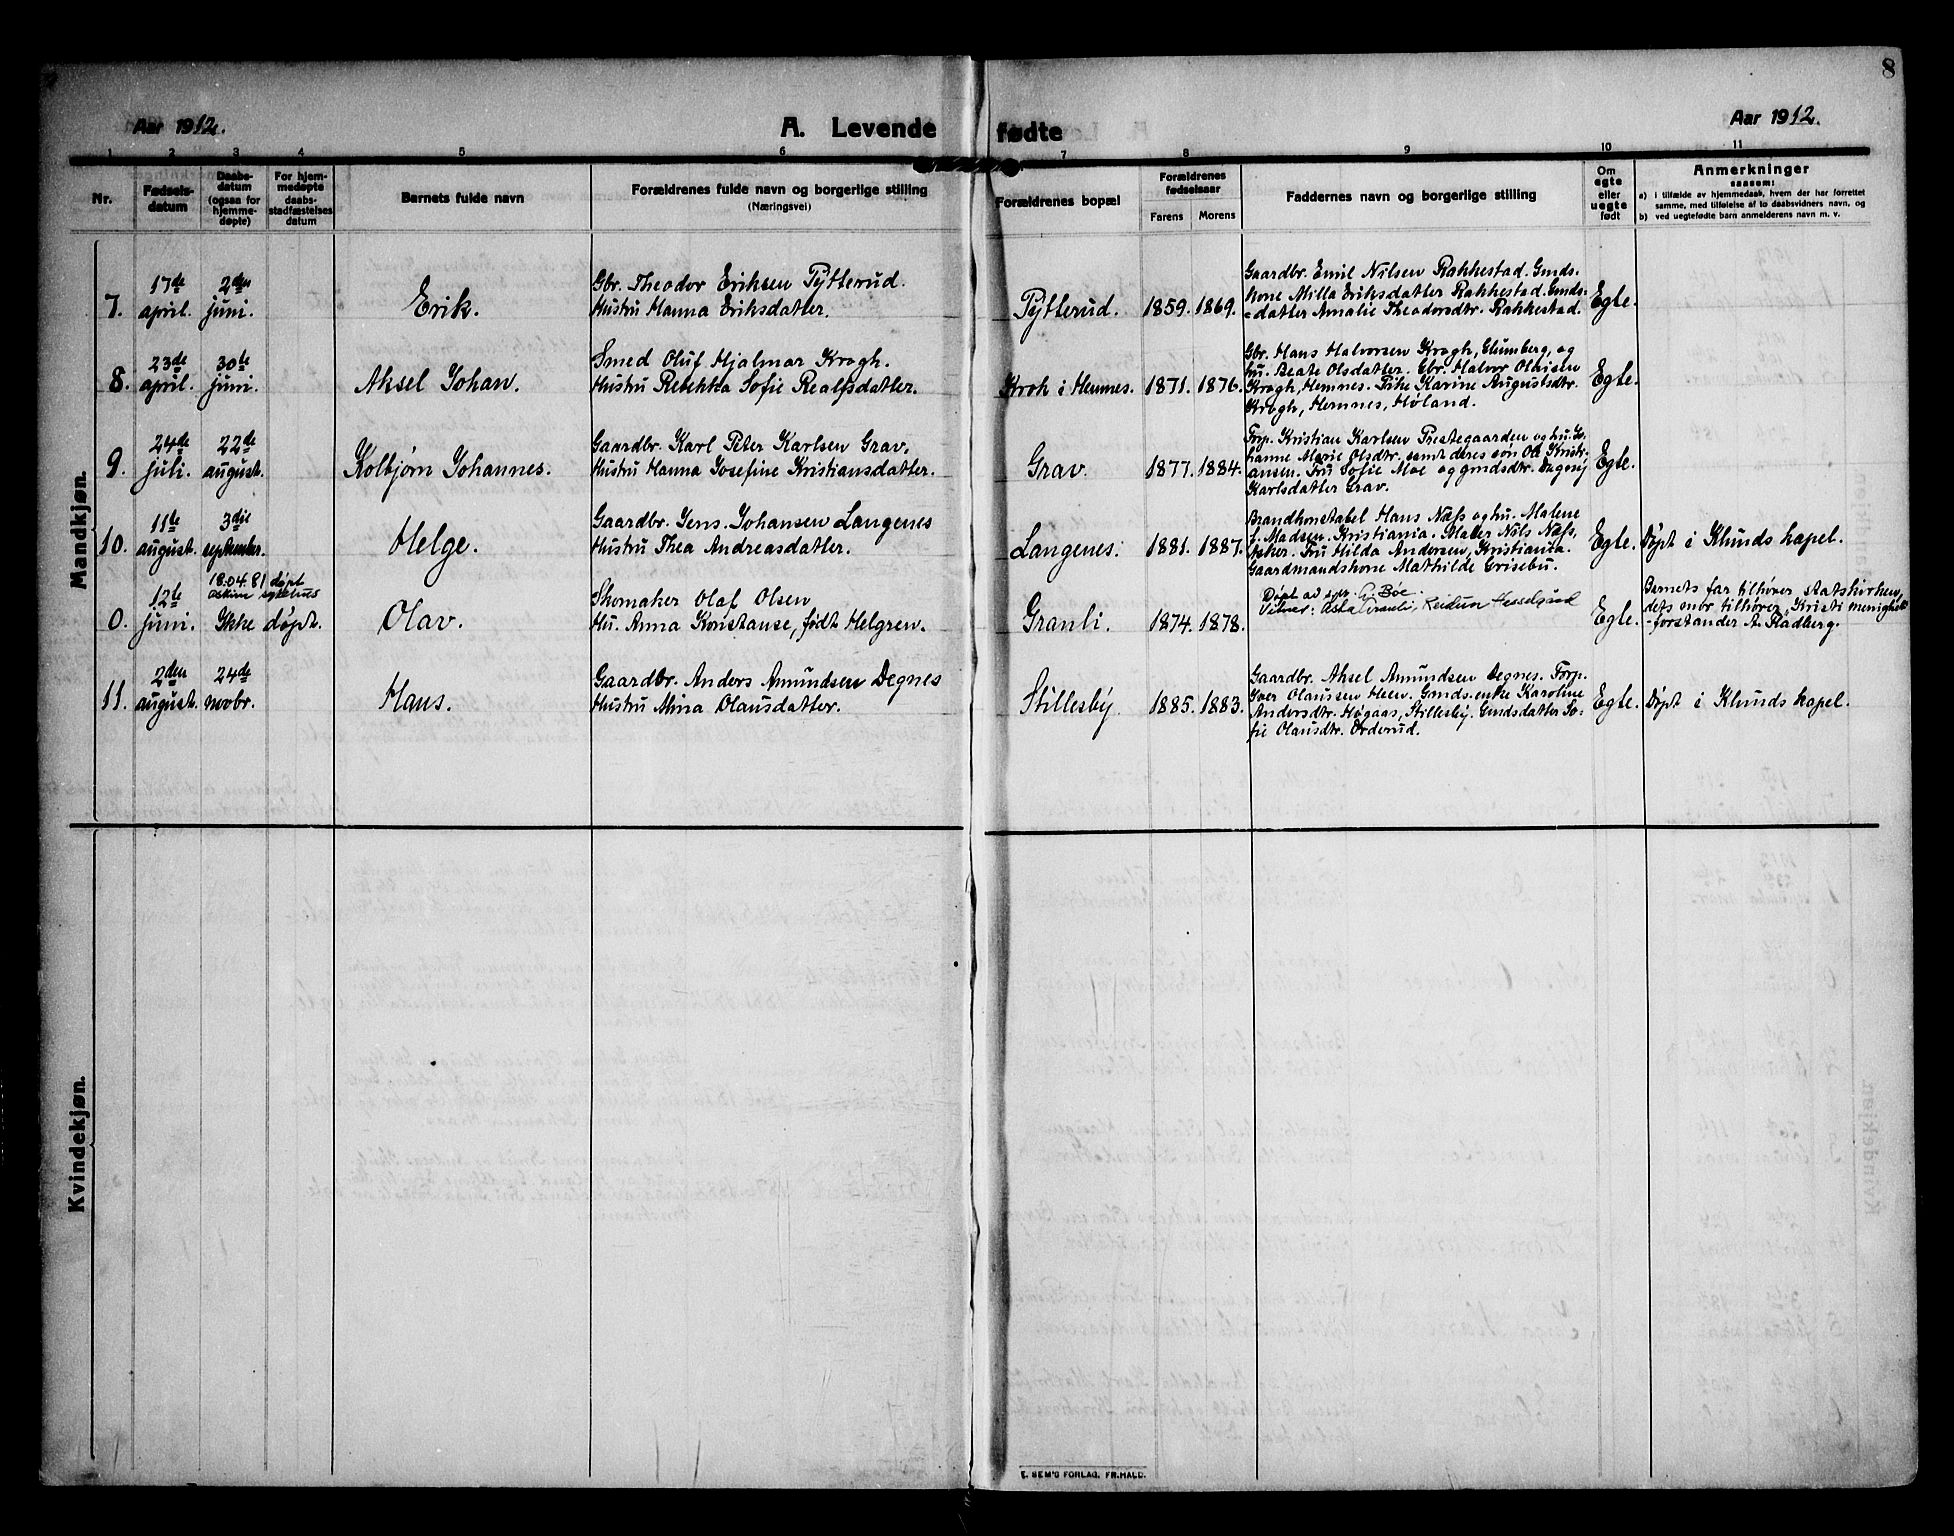 8
Aar 1912.
A. Levende
fødte
Aar 1912.
1 2 3 4 5 6 7 8 9 10 11
Nr.
Fødsels-
datum
Daabs-
datum
(ogsaa for
hjemme-
døpte)
For hjem-
medøpte
daabs-
stadfæstelses
datum
Barnets fulde navn
Forældrenes fulde navn og borgerlige stilling
(Næringsvei)
Forældrenes bopæl
Forældrenes
fødselsaar
Farens Morens
Faddernes navn og borgerlige stilling
Om
egte
eller
uegte
født
Anmerkninger
saasom:
a) i tilfælde av hjemmedaab, hvem der har forrettet
samme, med tilføielse af to daabsvidners navn, og
b) ved uegtefødte barn anmelderens navn m. v.
Mandkjøn.
7.
17de
april.
2den
juni.
Erik.
Gbr. Theodor Eriksen Pytterud.
Hustru Hanna Eriksdatter.
Pytterud.
1859. 1869.
Gaardbr. Emil Nilsen Rakkestad. Gmds-
kone Milla Eriksdatter Rakkestad. Gmds-
-datter Amalie Theodorsdtr. Rakkestad.
Egte.
8.
23de
april.
30te
juni.
Aksel Johan.
Smed Oluf Hjalmar Krogh.
Hustru Rebekka Sofie Realfsdatter.
Krok i Hemnes.
1871. 1876.
Gbr. Hans Halvorsen Krogh, Glumberg, og
hu. Beate Olsdatter. Gbr. Halvor Olaisen
Krogh, Hemnes. Pike Karine Augustsdtr.
Krogh, Hemnes, Høland.
Egte.
9.
24de
juli.
22de
august.
Kolbjørn Johannes.
Gaardbr. Karl Peter Karlsen Grav.
Hustru Hanna Josefine Kristiansdatter.
Grav.
1877. 1884.
Forp. Kristian Karlsen Prestegaarden og hu. Jo-
hanne Marie Olsdtr. samt deres søn Ole Kristi-
ansen. Fru Sofie Moe og gmdsdtr. Dagny
Karlsdatter Grav.
Egte.
10.
11te
august.
3die
september.
Helge.
Gaardbr. Jens Johansen Langenes
Hustru Thea Andreasdatter.
Langenes.
1881. 1887.
Brandkonstabel Hans Næss og hu. Malene
f. Madsen, Kristiania. Maler Nils Næss,
Asker. Fru Hilda Andersen, Kristiania.
Gaardmandskone Mathilde Grisebu.
Egte.
Døpt i Klunds kapel.
0.
12te
juni.
18.04.81 døpt
Askim sykehus
Ikke døpt.
Olav.
Skomaker Olaf Olsen
Hu. Anna Konstanse, født Helgren.
Granli.
1874. 1878.
Døpt av spr. G. Bøe.
Vitner: Asta Granli, Reidun Hesselgud
Egte.
Barnets far tilhører Statskirken,
dets mor tilhører "Kristi menighet"
-forstander A. Radberg.
11.
2den
august.
24de
novbr.
Hans.
Gaardbr. Anders Amundsen Degnes
Hustru Mina Olausdatter.
Stillesby
1885. 1883.
Gaardbr. Aksel Amundsen Degnes. Forp.
Iver Olaussen Heen. Gmds.enke Karoline
Andersdtr. Høgaas, Stillesby. Gmdsdatter So-
fie Olausdtr. Orderud.
Egte.
Døpt i Klunds kapel.
Kvindekjøn.
E. SEM'S FORLAG, FR.HALD.